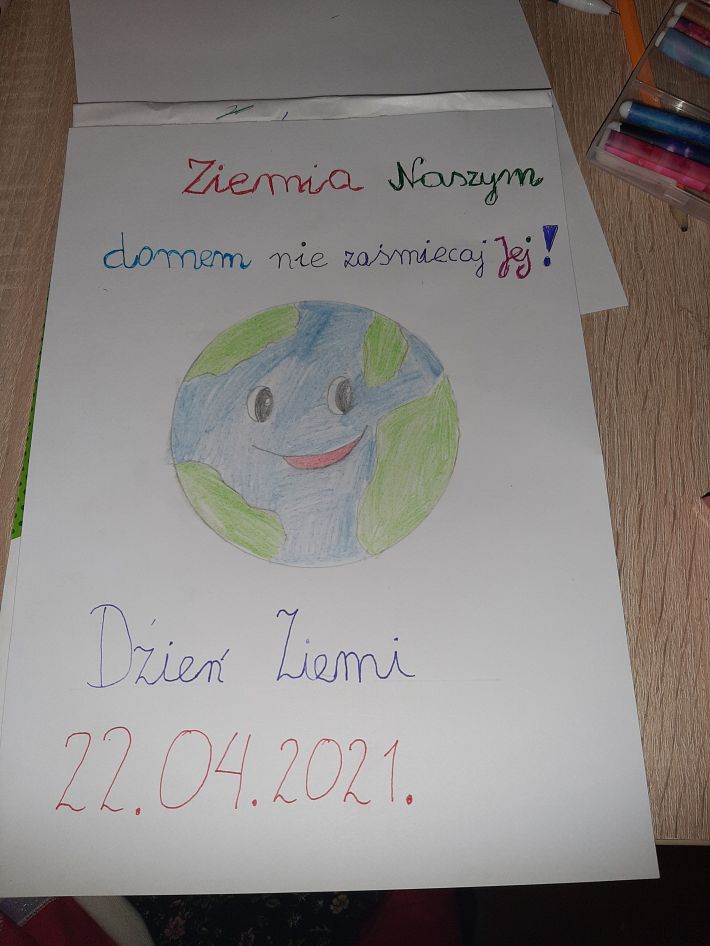 Ziemia Naszym
domem nie zaśmiecaj Jej!
Dźień Ziemi
22.04.2021.